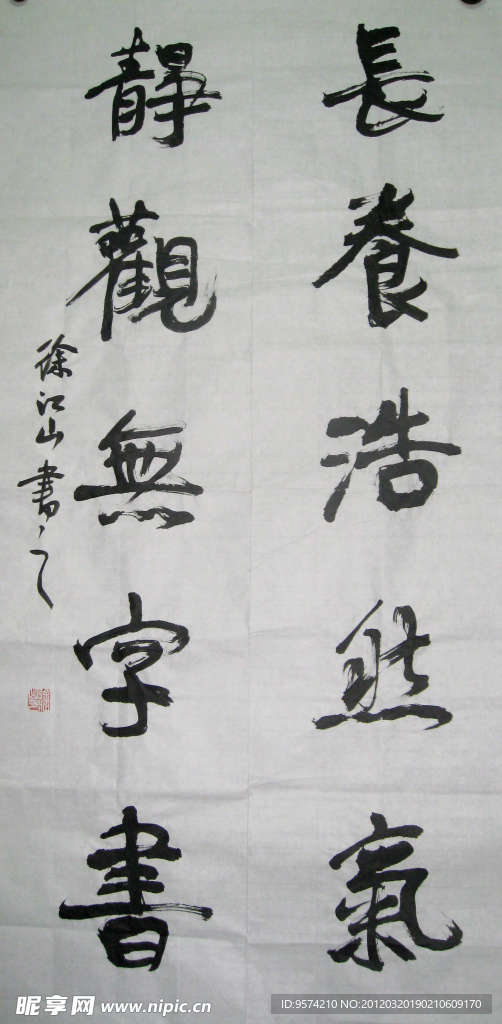 長養浩然氣
靜觀無字書
徐江山書之
昵享网 www.nipic.cn
ID:9574210 NO:20120320190210609170